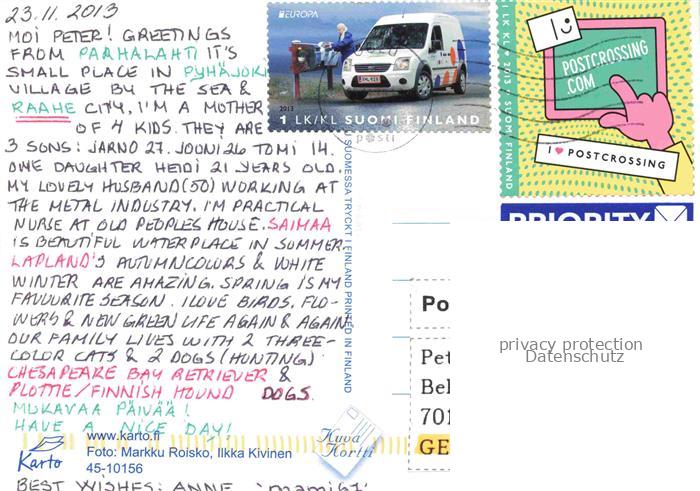 23.11. 2013
MOI PETER! GREETINGS
FROM PARHALAHTI IT'S
SMALL PLACE IN PYHÄJOKI
VILLAGE BY THE SEA &
RAAHE CITY, I'M A MOTHER
OF 4 KIDS. THEY ARE
3 SONS: JARNO 27. JOONI 26 TOMI 14.
ONE DAUGHTER HEIDI 21 YEARS OLD.
MY LOVELY HUSBAND (50) WORKING AT
THE METAL INDUSTRY. I'M PRACTICAL
NURSE AT OLD PEOPLES HOUSE. SAIMAA
IS BEAUTIFUL WATERPLACE IN SUMMER
LAPLAND'S AUTUMNCOLOURS & WHITE
WINTER ARE AMAZING. SPRING IS MY
FAVOURITE SEASON. I LOVE BIRDS, FLO-
WERS & NEW GREEN LIFE AGAIN & AGAIN
OUR FAMILY LIVES WITH 2 THREE-
COLOR CATS & 2 DOGS (HUNTING)
CHESAPEAKE BAY RETRIEVER &
PLOTTIE/FINNISH HOUND DOGS.
MUKAVAA PÄIVÄÄ!
HAVE A NICE DAY!
BEST WISHES: ANNE "mami67"
Karto
www.karto.fi
Foto: Markku Roisko, Ilkka Kivinen
45-10156
Kuva
Kortti
SUOMESSA TRYCKT I FINLAND PRINTED IN FINLAND
EUROPA
2013
1 LK/KL SUOMI FINLAND
posti
1 LK KL • 2013 • SUOMI FINLAND
POSTCROSSING
.COM
I ♥ POSTCROSSING
PRIORITY
Po
Pet
Bel
701
GE
privacy protection
Datenschutz